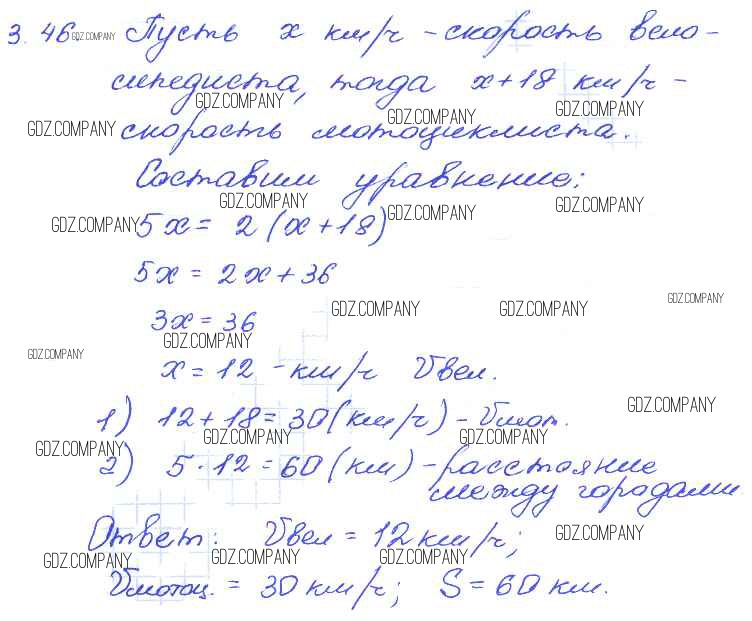 3.46 GDZ.COMPANY Пусть x км/ч - скорость вело-
сипедиста, тогда x+18 км/ч -
GDZ.COMPANY GDZ.COMPANY GDZ.COMPANY
GDZ.COMPANY скорость мотоциклиста.
Составим уравнение:
GDZ.COMPANY GDZ.COMPANY GDZ.COMPANY
GDZ.COMPANY 5x = 2(x+18)
5x = 2x+36
GDZ.COMPANY GDZ.COMPANY GDZ.COMPANY
3x = 36
GDZ.COMPANY GDZ.COMPANY
x = 12 - км/ч Vвел.
GDZ.COMPANY
1) 12+18=30(км/ч) - Vмот.
GDZ.COMPANY GDZ.COMPANY GDZ.COMPANY
2) 5·12=60(км) - расстояние
между городами
Ответ: Vвел = 12 км/ч;
GDZ.COMPANY GDZ.COMPANY GDZ.COMPANY GDZ.COMPANY
Vмотоц. = 30 км/ч; S = 60 км.